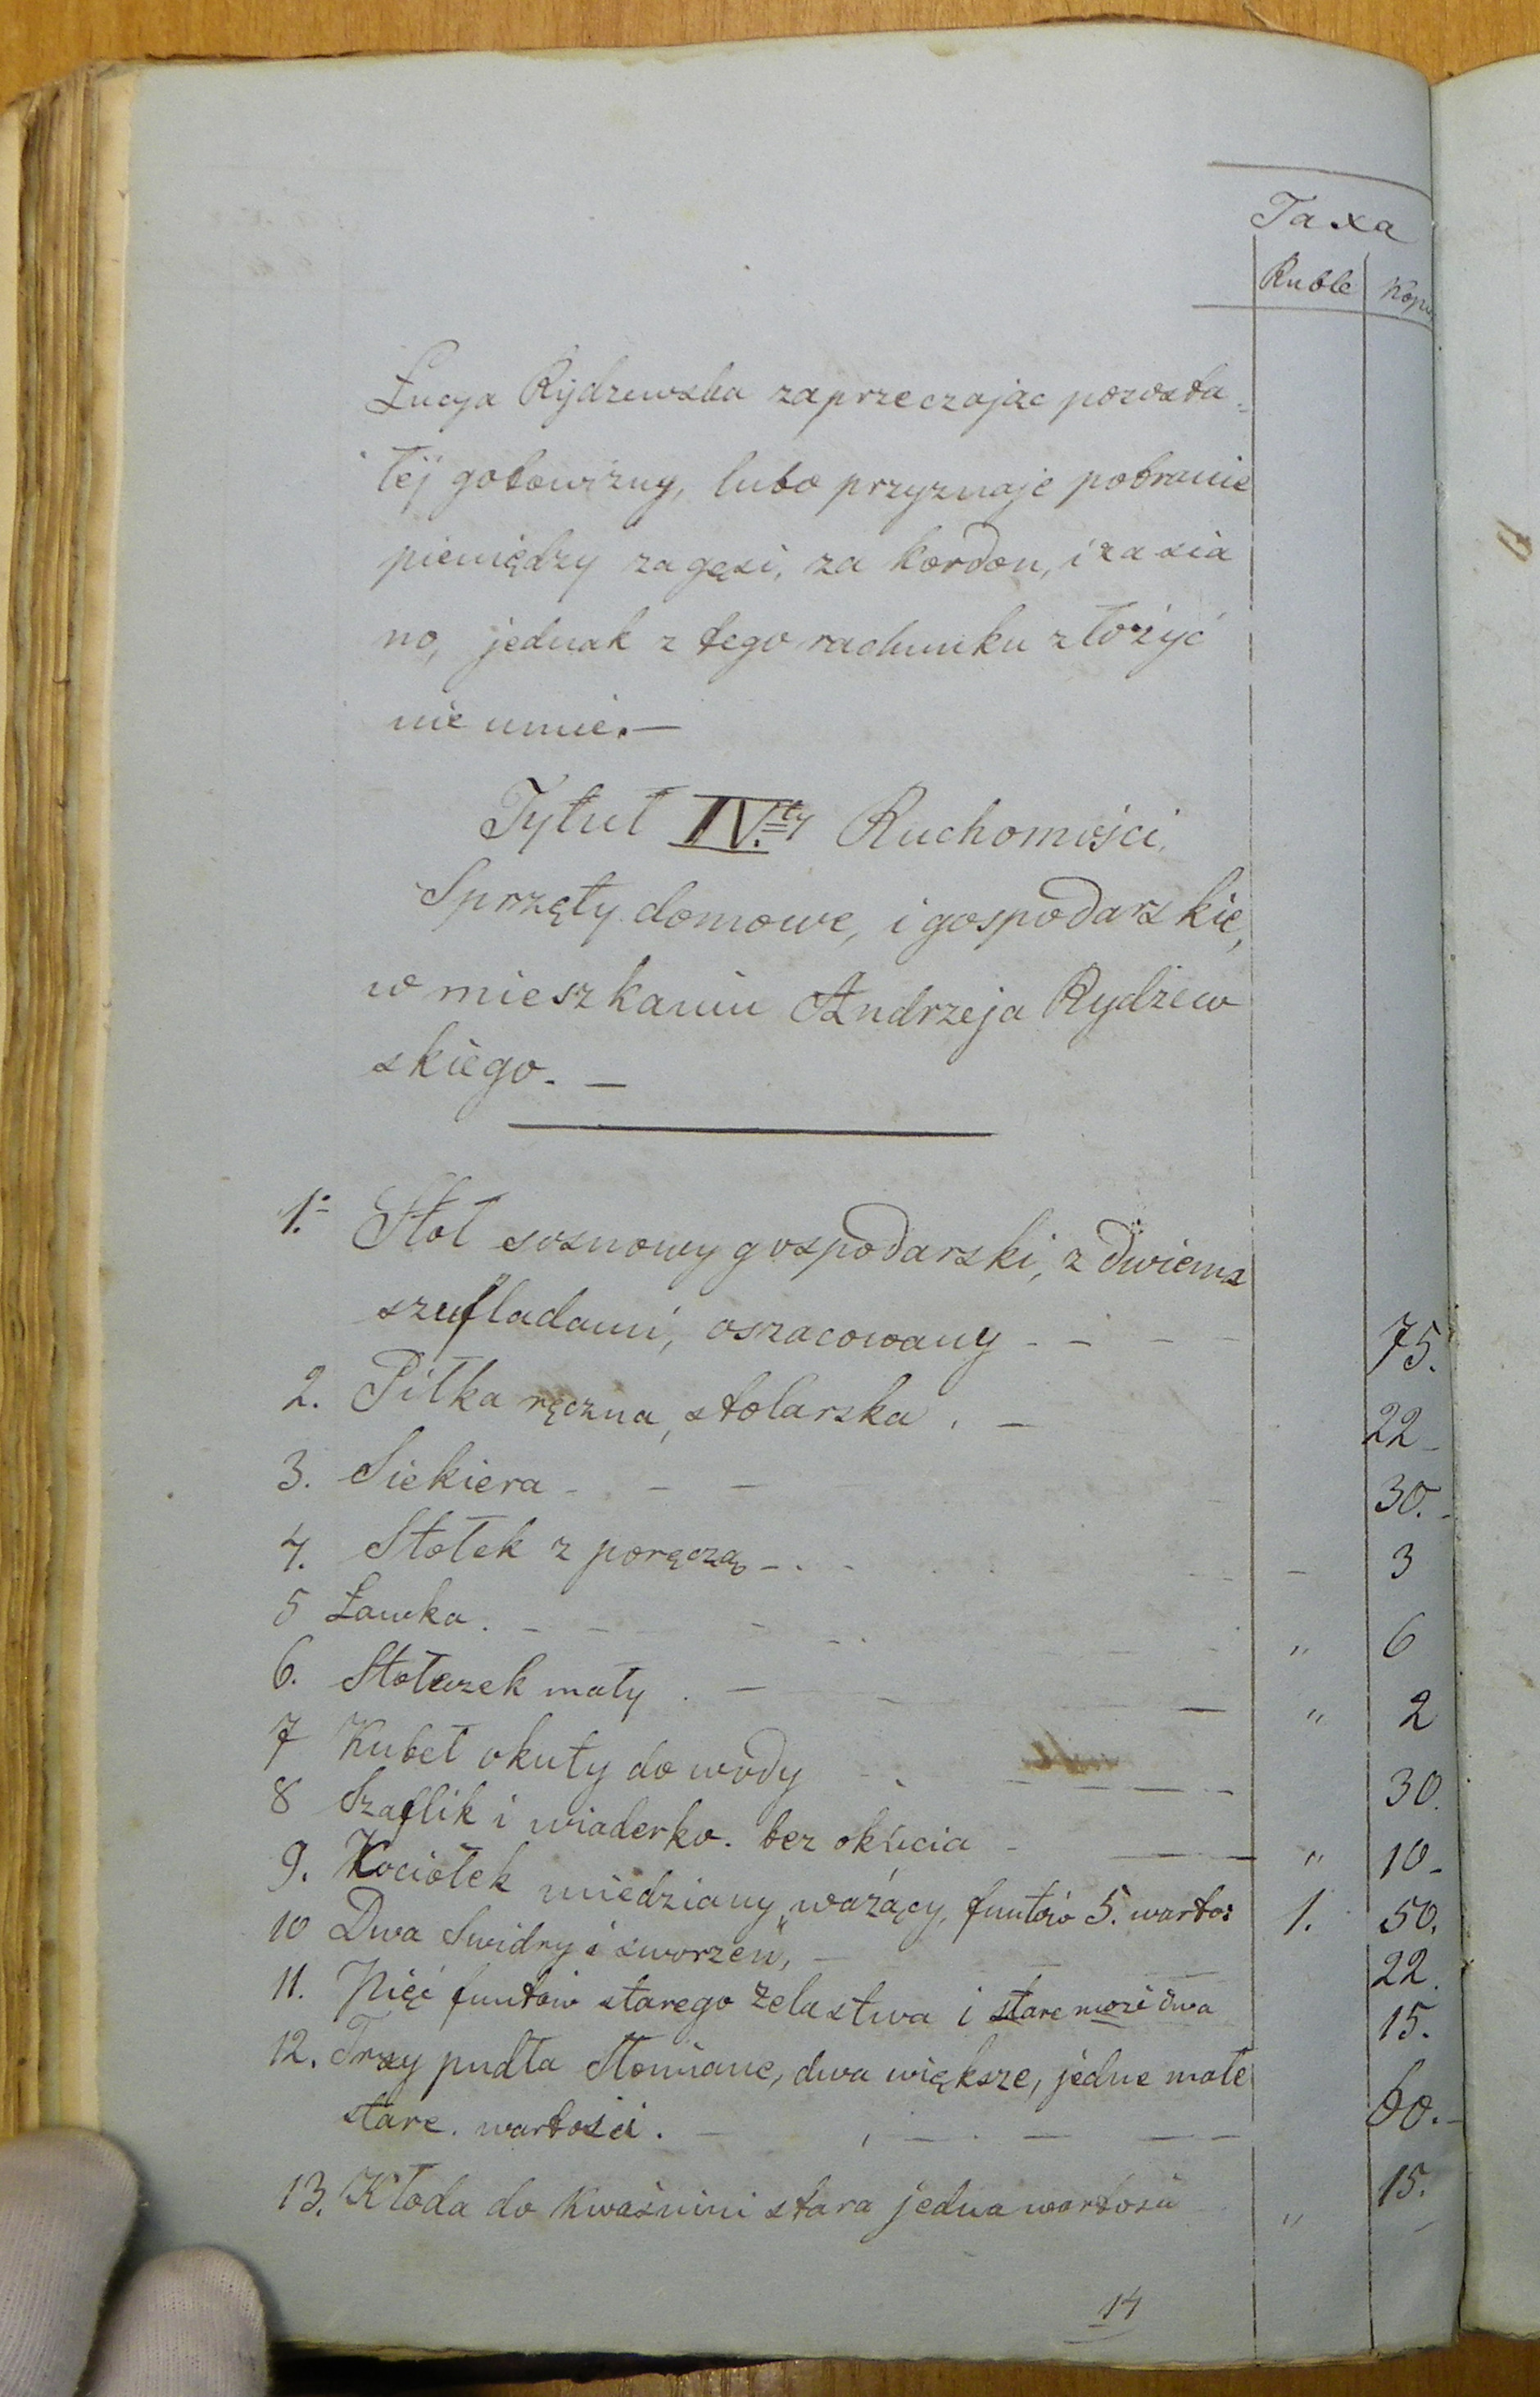 Taxa
Ruble Kop.
Łucya Rydzewska zaprzeczając pozosta=
łej gotowizny, lubo przyznaje pobranie
pieniędzy za gęsi, za kordon, i za sia
no, jednak z tego rachunku złożyć
nie umie. —
Tytuł IV.ty Ruchomości.
Sprzęty domowe, i gospodarskie,
w mieszkaniu Andrzeja Rydzew
skiego. —
1. Stół sosnowy gospodarski, z dwiema
szufladami, oszacowany - - - - 75.
2. Piłka ręczna, stolarska . — 22 -
3. Siekiera - - — 30. -
4. Stołek z poręczą - . - - 3
5 Ławka . - - - - " 6
6. Stołeczek mały . — - — " 2
7 Kubeł okuty do wody - - — 30.
8 Szaflik i wiaderko. bez okucia - — " 10 -
9. Kociołek miedziany, ważący, funtów 5. wartoś: 1. 50.
10 Dwa Swidry i sworzeń, — 22.
11. Pięć funtów starego żelastwa i stare noże dwa 15.
12. Trzy pudła słomiane, dwa większe, jedne małe
stare. wartości . - , — . — — 60. -
13. Kłoda do kwaśnini stara jedna wartości " 15.
14